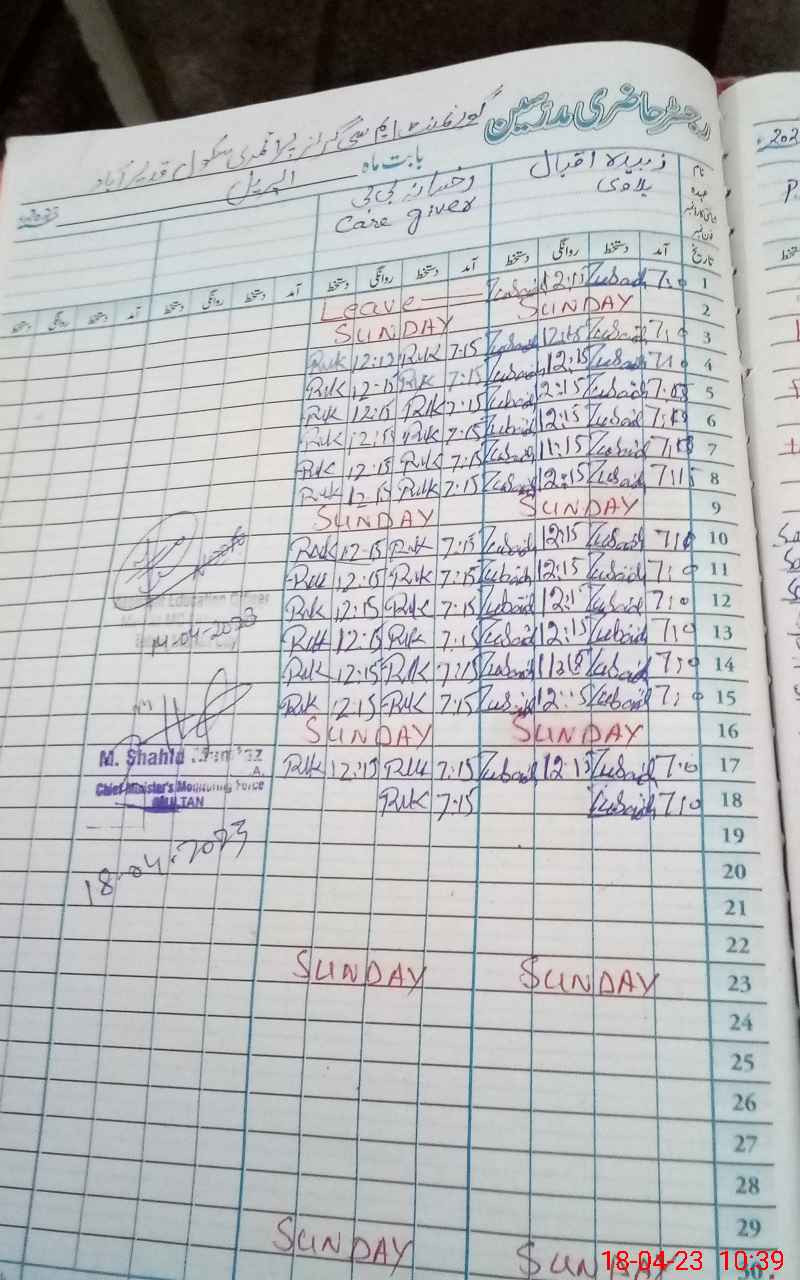 رجسٹر حاضری مدرسین گورنمنٹ ایم سی گرلز پرائمری سکول قدیر آباد
بابت ماہ اپریل 2023
نام زبیدہ اقبال رخسانہ بی بی
عہدہ بلاوی Care giver
تاریخ آمد دستخط روانگی دستخط آمد دستخط روانگی دستخط آمد دستخط روانگی دستخط آمد دستخط روانگی دستخط
1 7:0 Zubaid 12:15 Zubaid Leave
2 SUNDAY SUNDAY
3 7:0 Zubaid 12:15 Zubaid 7:15 Ruk 12:15 Ruk
4 7:0 Zubaid 12:15 Zubaid 7:15 Ruk 12:15 Ruk
5 7:05 Zubaid 12:15 Zubaid 7:15 Ruk 12:15 Ruk
6 Zubaid 12:15 Zubaid 7:15 Ruk 12:15 Ruk
7 Zubaid 11:15 Zubaid 7:15 Ruk 12:15 Ruk
8 7:15 Zubaid 12:15 Zubaid 7:15 Ruk 12:15 Ruk
9 SUNDAY SUNDAY
10 7:0 Zubaid 12:15 Zubaid 7:15 Ruk 12:15 Ruk
11 7:0 Zubaid 12:15 Zubaid 7:15 Ruk 12:15 Ruk
12 7:0 Zubaid Zubaid 7:15 Ruk 12:15 Ruk
13 7:0 Zubaid 12:15 Zubaid 7:15 Ruk 12:15 Ruk
14 7:0 Zubaid Zubaid 7:15 Ruk 12:15 Ruk
15 7:0 Zubaid Zubaid 7:15 Ruk 12:15 Ruk
16 SUNDAY SUNDAY
17 7:0 Zubaid 12:15 Zubaid 7:15 Ruk 12:15 Ruk
18 7:0 Zubaid 7:15 Ruk
19
20
21
22
23 SUNDAY SUNDAY
24
25
26
27
28
29
30 SUNDAY SUNDAY
Education Officer
14-04-2023
M. Shahid
Chief Minister's Monitoring Force
MULTAN
18-04-2023
18-04-23 10:39